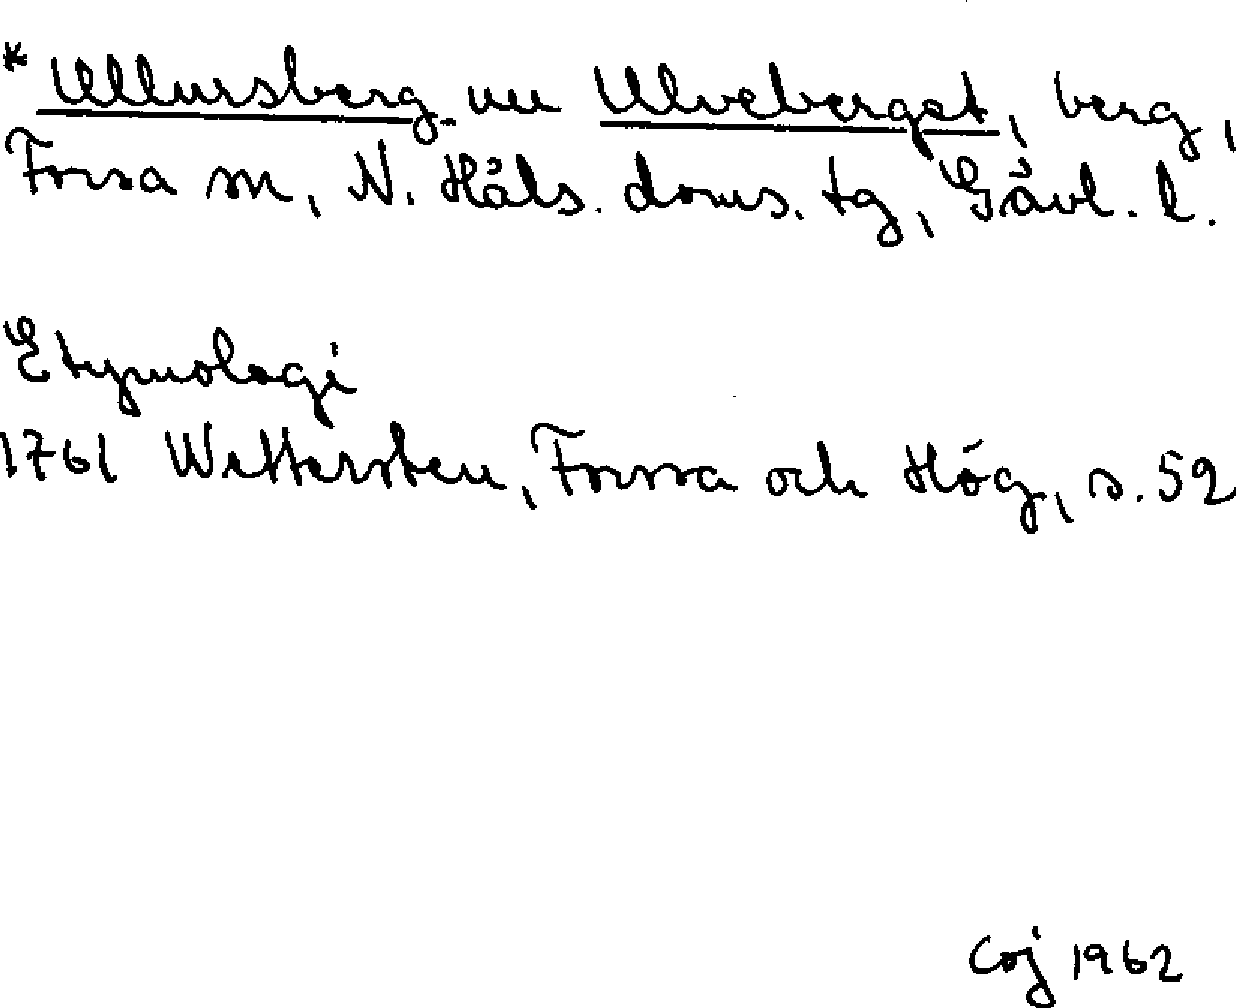 * Ullursberg, nu Ulveberget, berg,
Forsa sn, N. Häls. doms. tg, Gävl. l.
Etymologi
1761 Wettersten, Forssa och Hög, s. 52
Coj 1962